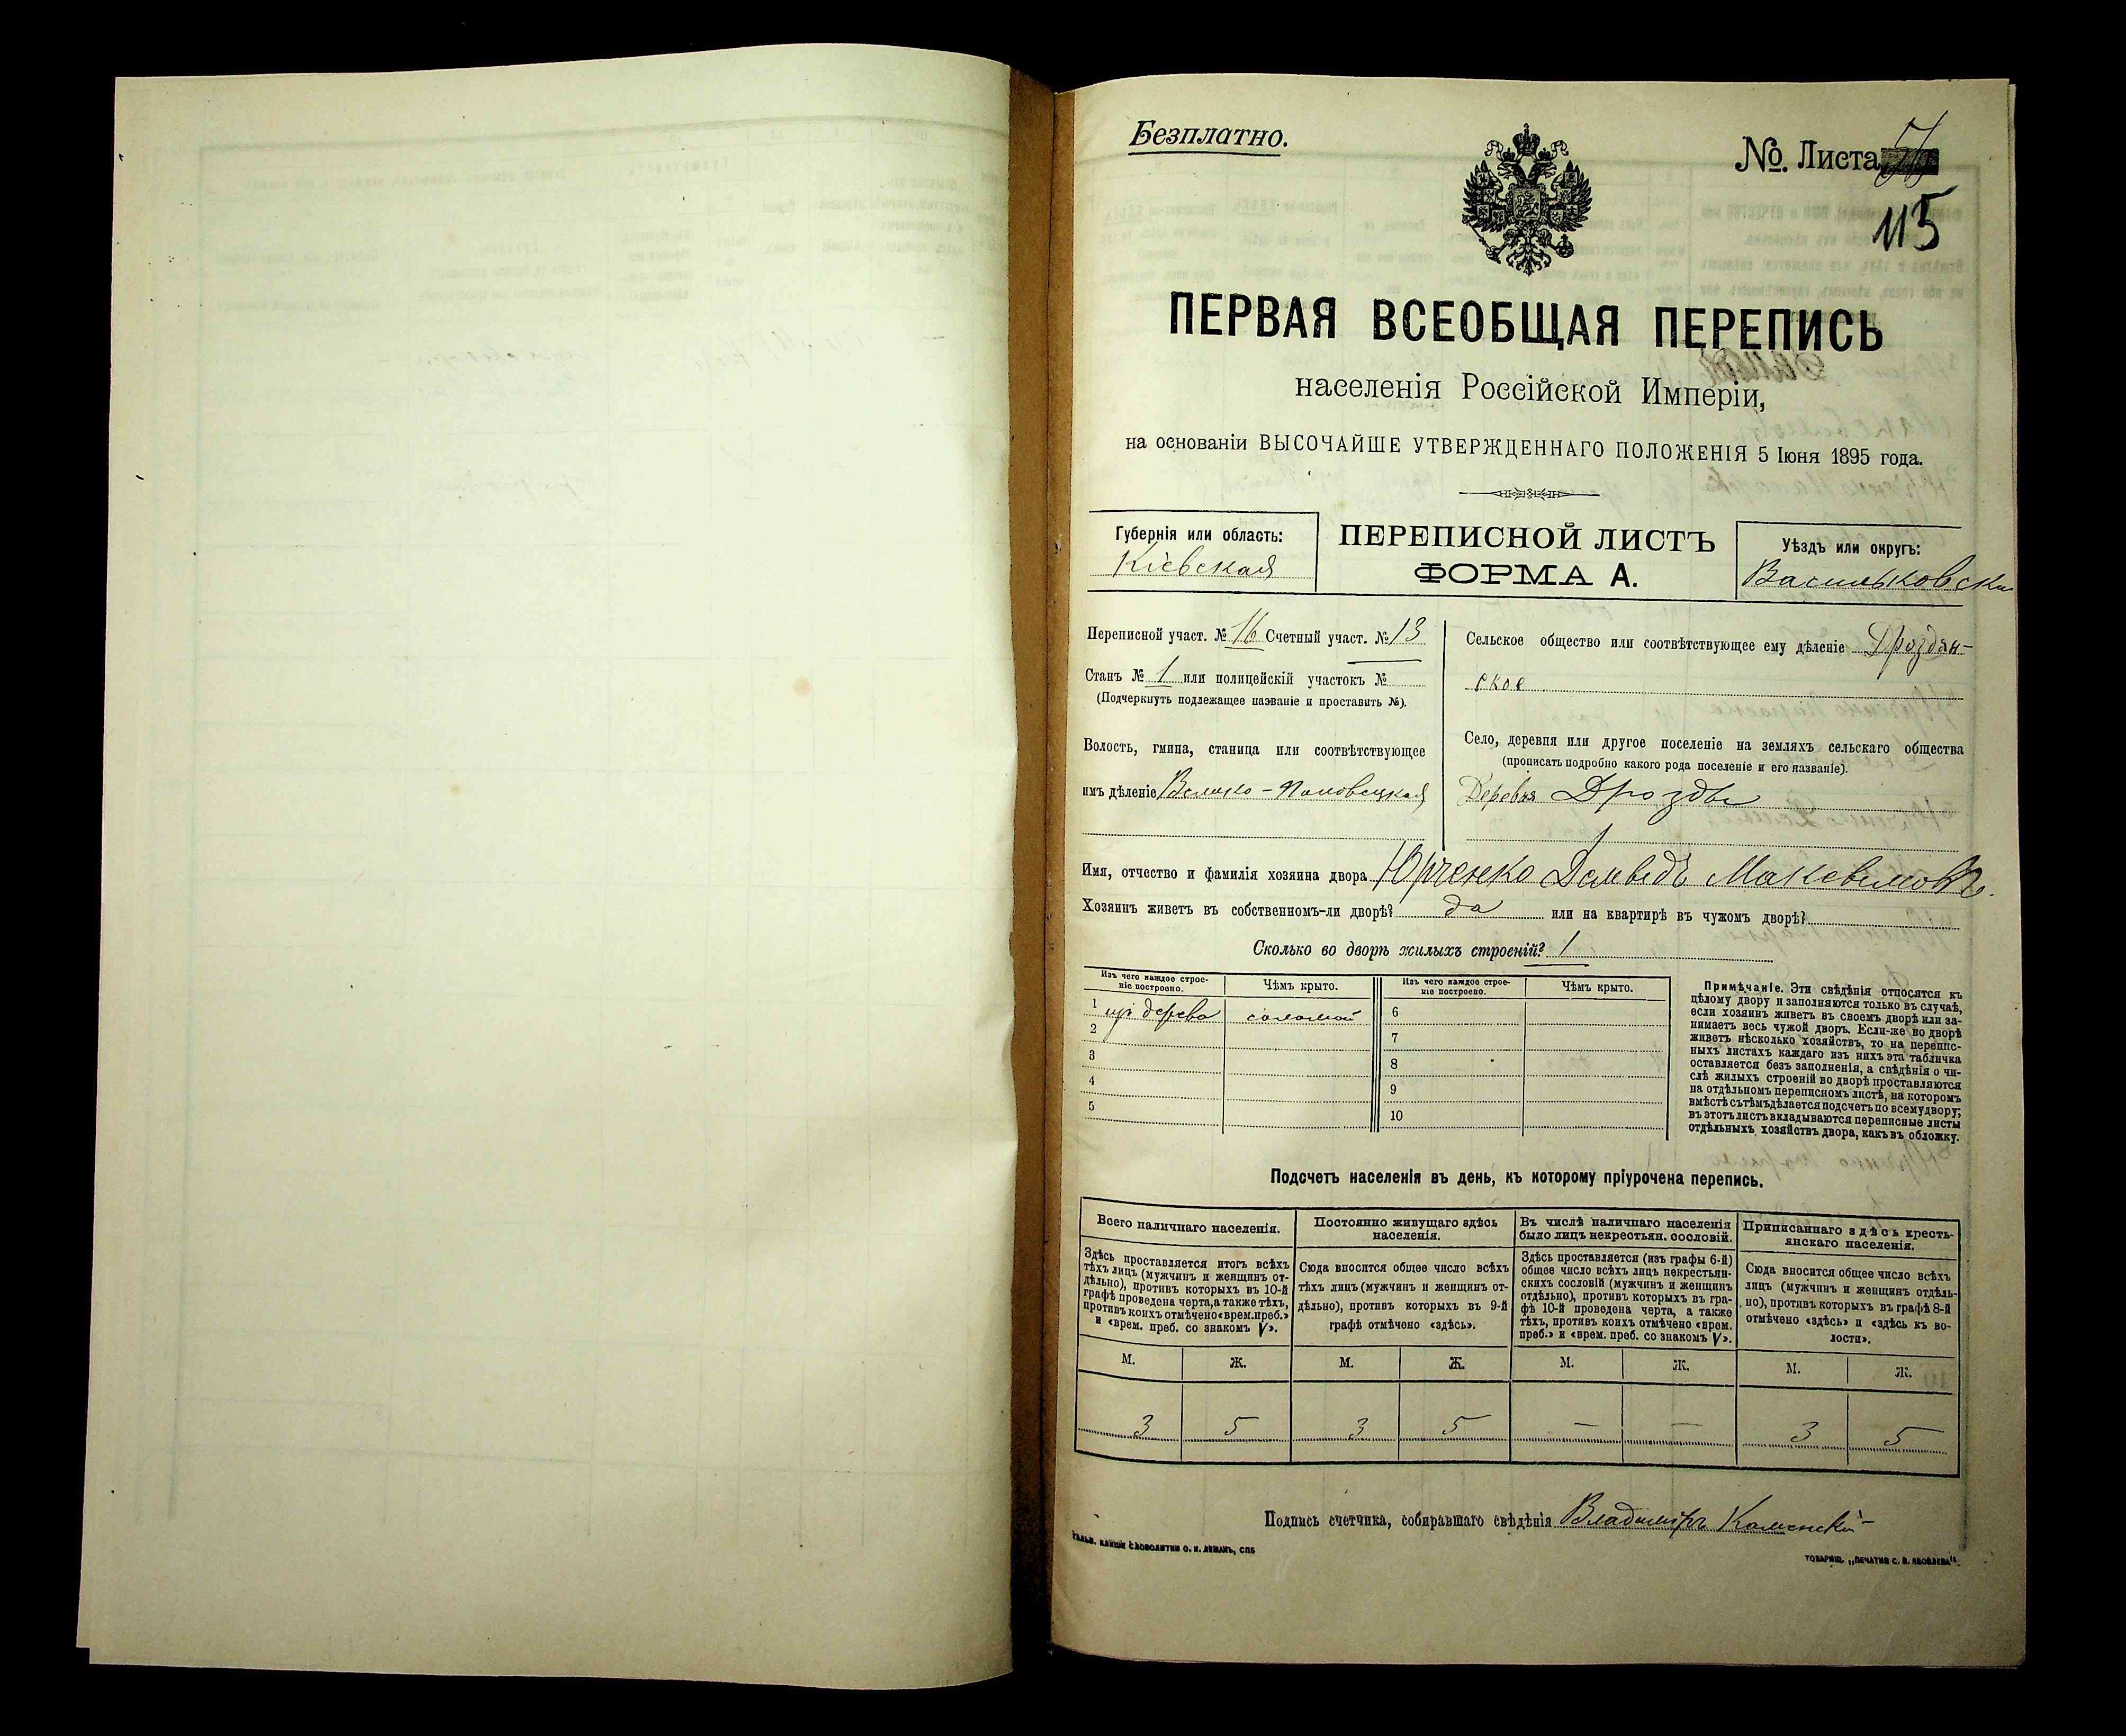 Безплатно.
№. Листа
115
ПЕРВАЯ ВСЕОБЩАЯ ПЕРЕПИСЬ
населенія Россійской Имперіи,
на основаніи ВЫСОЧАЙШЕ УТВЕРЖДЕННАГО ПОЛОЖЕНІЯ 5 Іюня 1895 года.
Губернія или область:
Кіевская
ПЕРЕПИСНОЙ ЛИСТЪ
ФОРМА А.
Уѣздъ или округъ:
Васильковскі
Переписной участ. № 16 Счетный участ. № 13
Станъ № 1 или полицейскій участокъ №
(Подчеркнуть подлежащее названіе и проставить №).
Волость, гмина, станица или соотвѣтствующее
имъ дѣленіе Велико-Половецкая
Сельское общество или соотвѣтствующее ему дѣленіе Дроздян-
ское
Село, деревня или другое поселеніе на земляхъ сельскаго общества
(прописать подробно какого рода поселеніе и его названіе).
Деревня Дрозды
Имя, отчество и фамилія хозяина двора Юрченко
Хозяинъ живетъ въ собственномъ-ли дворѣ? да или на квартирѣ въ чужомъ дворѣ?
Сколько во дворѣ жилыхъ строеній? 1
Изъ чего каждое строе-
ніе построено.
Чѣмъ крыто.
Изъ чего каждое строе-
ніе построено.
Чѣмъ крыто.
1 изъ дерева соломой 6
2 7
3 8
4 9
5 10
Примѣчаніе. Эти свѣдѣнія относятся къ
цѣлому двору и заполняются только въ случаѣ,
если хозяинъ живетъ въ своемъ дворѣ или за-
нимаетъ весь чужой дворъ. Если-же во дворѣ
живетъ нѣсколько хозяйствъ, то на перепис-
ныхъ листахъ каждаго изъ нихъ эта табличка
оставляется безъ заполненія, а свѣдѣнія о чи-
слѣ жилыхъ строеній во дворѣ проставляются
на отдѣльномъ переписномъ листѣ, на которомъ
вмѣстѣ съ тѣмъ дѣлается подсчетъ по всему двору;
въ этотъ листъ вкладываются переписные листы
отдѣльныхъ хозяйствъ двора, какъ въ обложку.
Подсчетъ населенія въ день, къ которому пріурочена перепись.
Всего наличнаго населенія.
Здѣсь проставляется итогъ всѣхъ
тѣхъ лицъ (мужчинъ и женщинъ от-
дѣльно), противъ которыхъ въ 10-й
графѣ проведена черта, а также тѣхъ,
противъ коихъ отмѣчено «врем. преб.»
и «врем. преб. со знакомъ V».
Постоянно живущаго здѣсь
населенія.
Сюда вносится общее число всѣхъ
тѣхъ лицъ (мужчинъ и женщинъ от-
дѣльно), противъ которыхъ въ 9-й
графѣ отмѣчено «здѣсь».
Въ числѣ наличнаго населенія
было лицъ некрестьян. сословій.
Здѣсь проставляется (изъ графы 6-й)
общее число всѣхъ лицъ некрестьян-
скихъ сословій (мужчинъ и женщинъ
отдѣльно), противъ которыхъ въ гра-
фѣ 10-й проведена черта, а также
тѣхъ, противъ коихъ отмѣчено «врем.
преб.» и «врем. преб. со знакомъ V».
Приписаннаго здѣсь кресть-
янскаго населенія.
Сюда вносится общее число всѣхъ
лицъ (мужчинъ и женщинъ отдѣль-
но), противъ которыхъ въ графѣ 8-й
отмѣчено «здѣсь» и «здѣсь къ во-
лости».
М. Ж. М. Ж. М. Ж. М. Ж.
3 5 3 5 — — 3 5
Подпись счетчика, собиравшаго свѣдѣнія Владиміръ Каменскій
ТОВАРИЩ. „ПЕЧАТНЯ С. П. ЯКОВЛЕВА“.